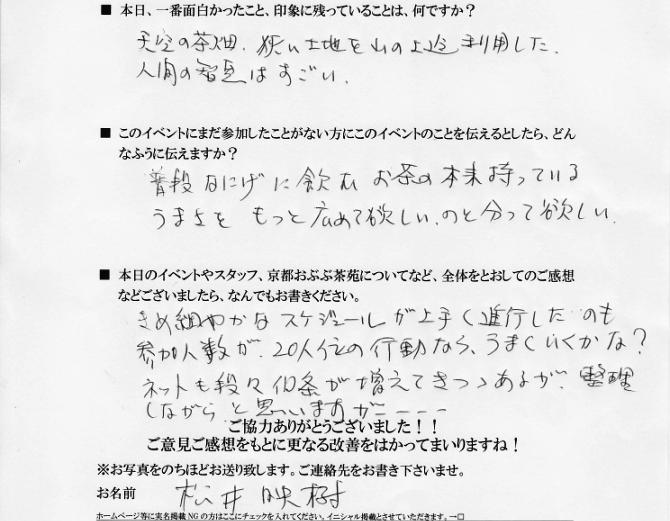 ■ 本日、一番面白かったこと、印象に残っていることは、何ですか？
天空の茶畑、狭い土地を山の上迄利用した、
人間の智恵はすごい、
■ このイベントにまだ参加したことがない方にこのイベントのことを伝えるとしたら、どん
なふうに伝えますか？
普段なにげに飲む お茶の本来持っている
うまさを もっと広めて欲しい、のと分って欲しい、
■ 本日のイベントやスタッフ、京都おぶぶ茶苑についてなど、全体をとおしてのご感想
などございましたら、なんでもお書きください。
きめ細やかなスケジュールが上手く進行したのも
参加人数が、20人位の行動なら、うまくいくかな？
ネットも段々 が増えてきつつあるが、整理
しながらと思いますがーーーー
ご協力ありがとうございました！！
ご意見ご感想をもとに更なる改善をはかってまいりますね！
※お写真をのちほどお送り致します。ご連絡先をお書き下さいませ。
お名前 松井 映樹
ホームページ等に実名掲載NGの方はここにチェックを入れてください。イニシャル掲載とさせていただきます。→□